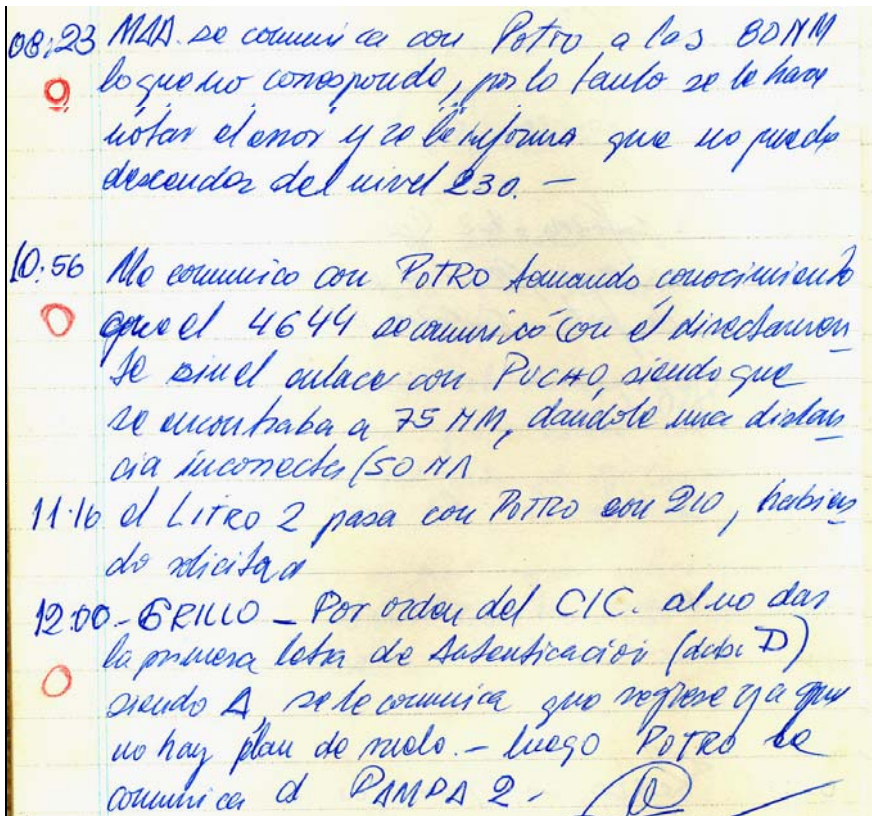 08:23 MAA. se comunica con Potro a las 80NM
lo que no corresponde, por lo tanto se le hace
notar el error y se le informa que no puede
descender del nivel 230. —
10:56 Me comunico con POTRO tomando conocimiento
que el 4644 se comunicó con él directamen
te sin el enlace con PUCHO, siendo que
se encontraba a 75 NM, dandole una distan
cia incorrecta (50 NM
11:16 el LITRO 2 pasa con POTRO con 210, habien
do solicitad
12:00 - GRILLO - Por orden del CIC. al no dar
la primera letra de Autenticación (debe D)
siendo A, se le comunica que regrese ya que
no hay plan de vuelo. - luego POTRO lo
comunica a PAMPA 2 -